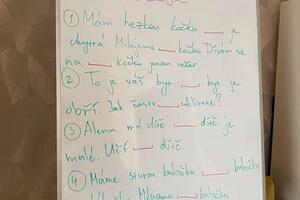 ① Mám hezkou kočku ___ je
chytrá Milujeme ___ kočku Dívám se
na ___ kočku jeden večer
② To je váš byt ___ byt je
obří. Jak často ___ uklízíte?
③ Alena má dítě ___ dítě je
malé. Učí ___ dítě.
④ Máme starou babičku ___ babičku
Milujeme ___ babičku